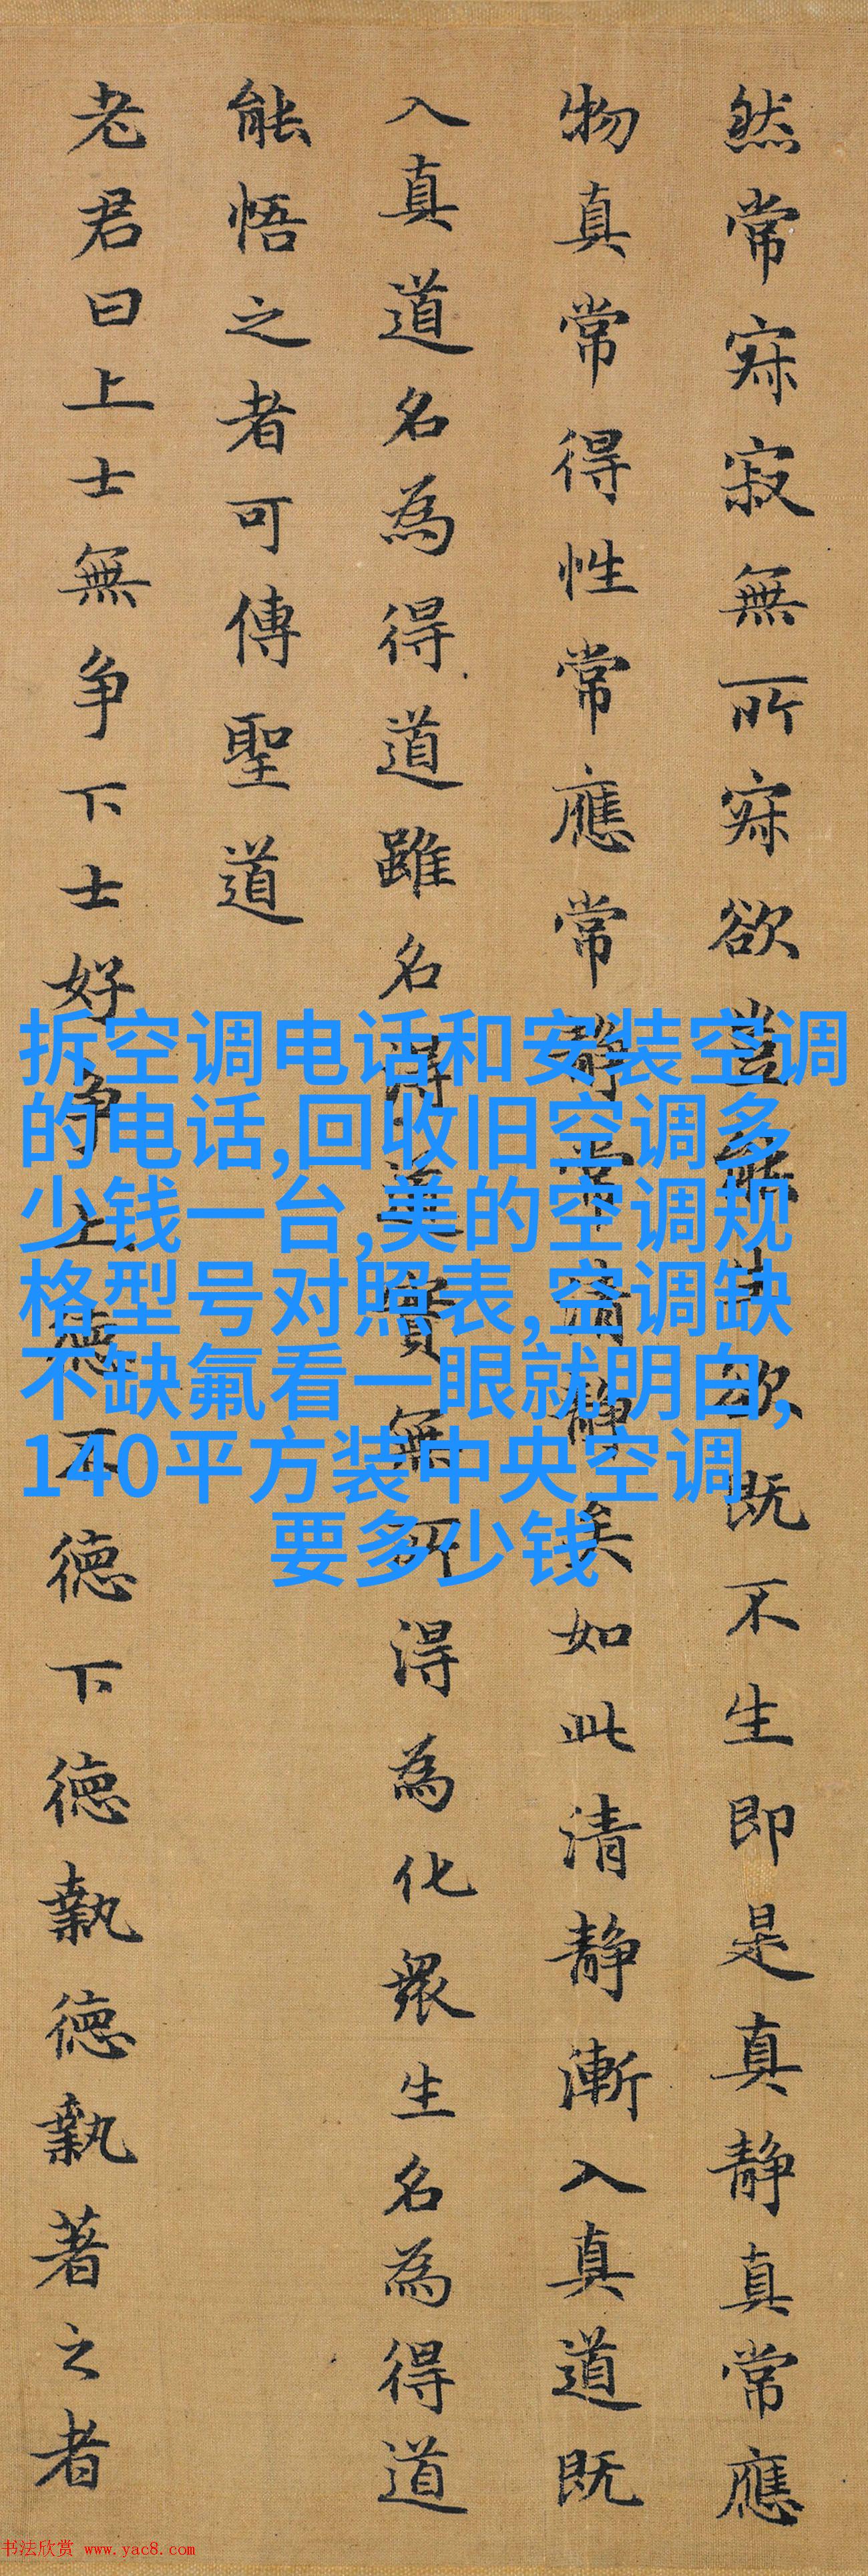 然常寂寂無所寂欲豈能生欲既不生即是真静真常應
物真常得性常應常静常清静矣如此清静漸入真道既
入真道名為得道雖名得道實無所得為化衆生名為得道
能悟之者可傳聖道
老君曰上士無争下士好争上德不德下德執德執著之者
拆空调电话和安装空调
的电话,回收旧空调多
少钱一台,美的空调规
格型号对照表,空调缺
不缺氟看一眼就明白,
140平方装中央空调
要多少钱
书法欣赏 www.yac8.com